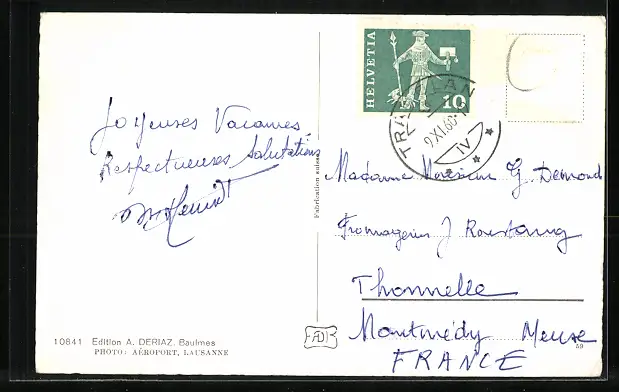 HELVETIA
10
TRAMELAN
9.XI.60
Joyeuses Vacances
Respectueuses Salutations
Fabrication suisse
Madame Monsieur G. Demond
Fromageries J
Thonnelle
Montmédy Meuse
FRANCE
10841 Edition A. DERIAZ. Baulmes
PHOTO: AÉROPORT, LAUSANNE
59